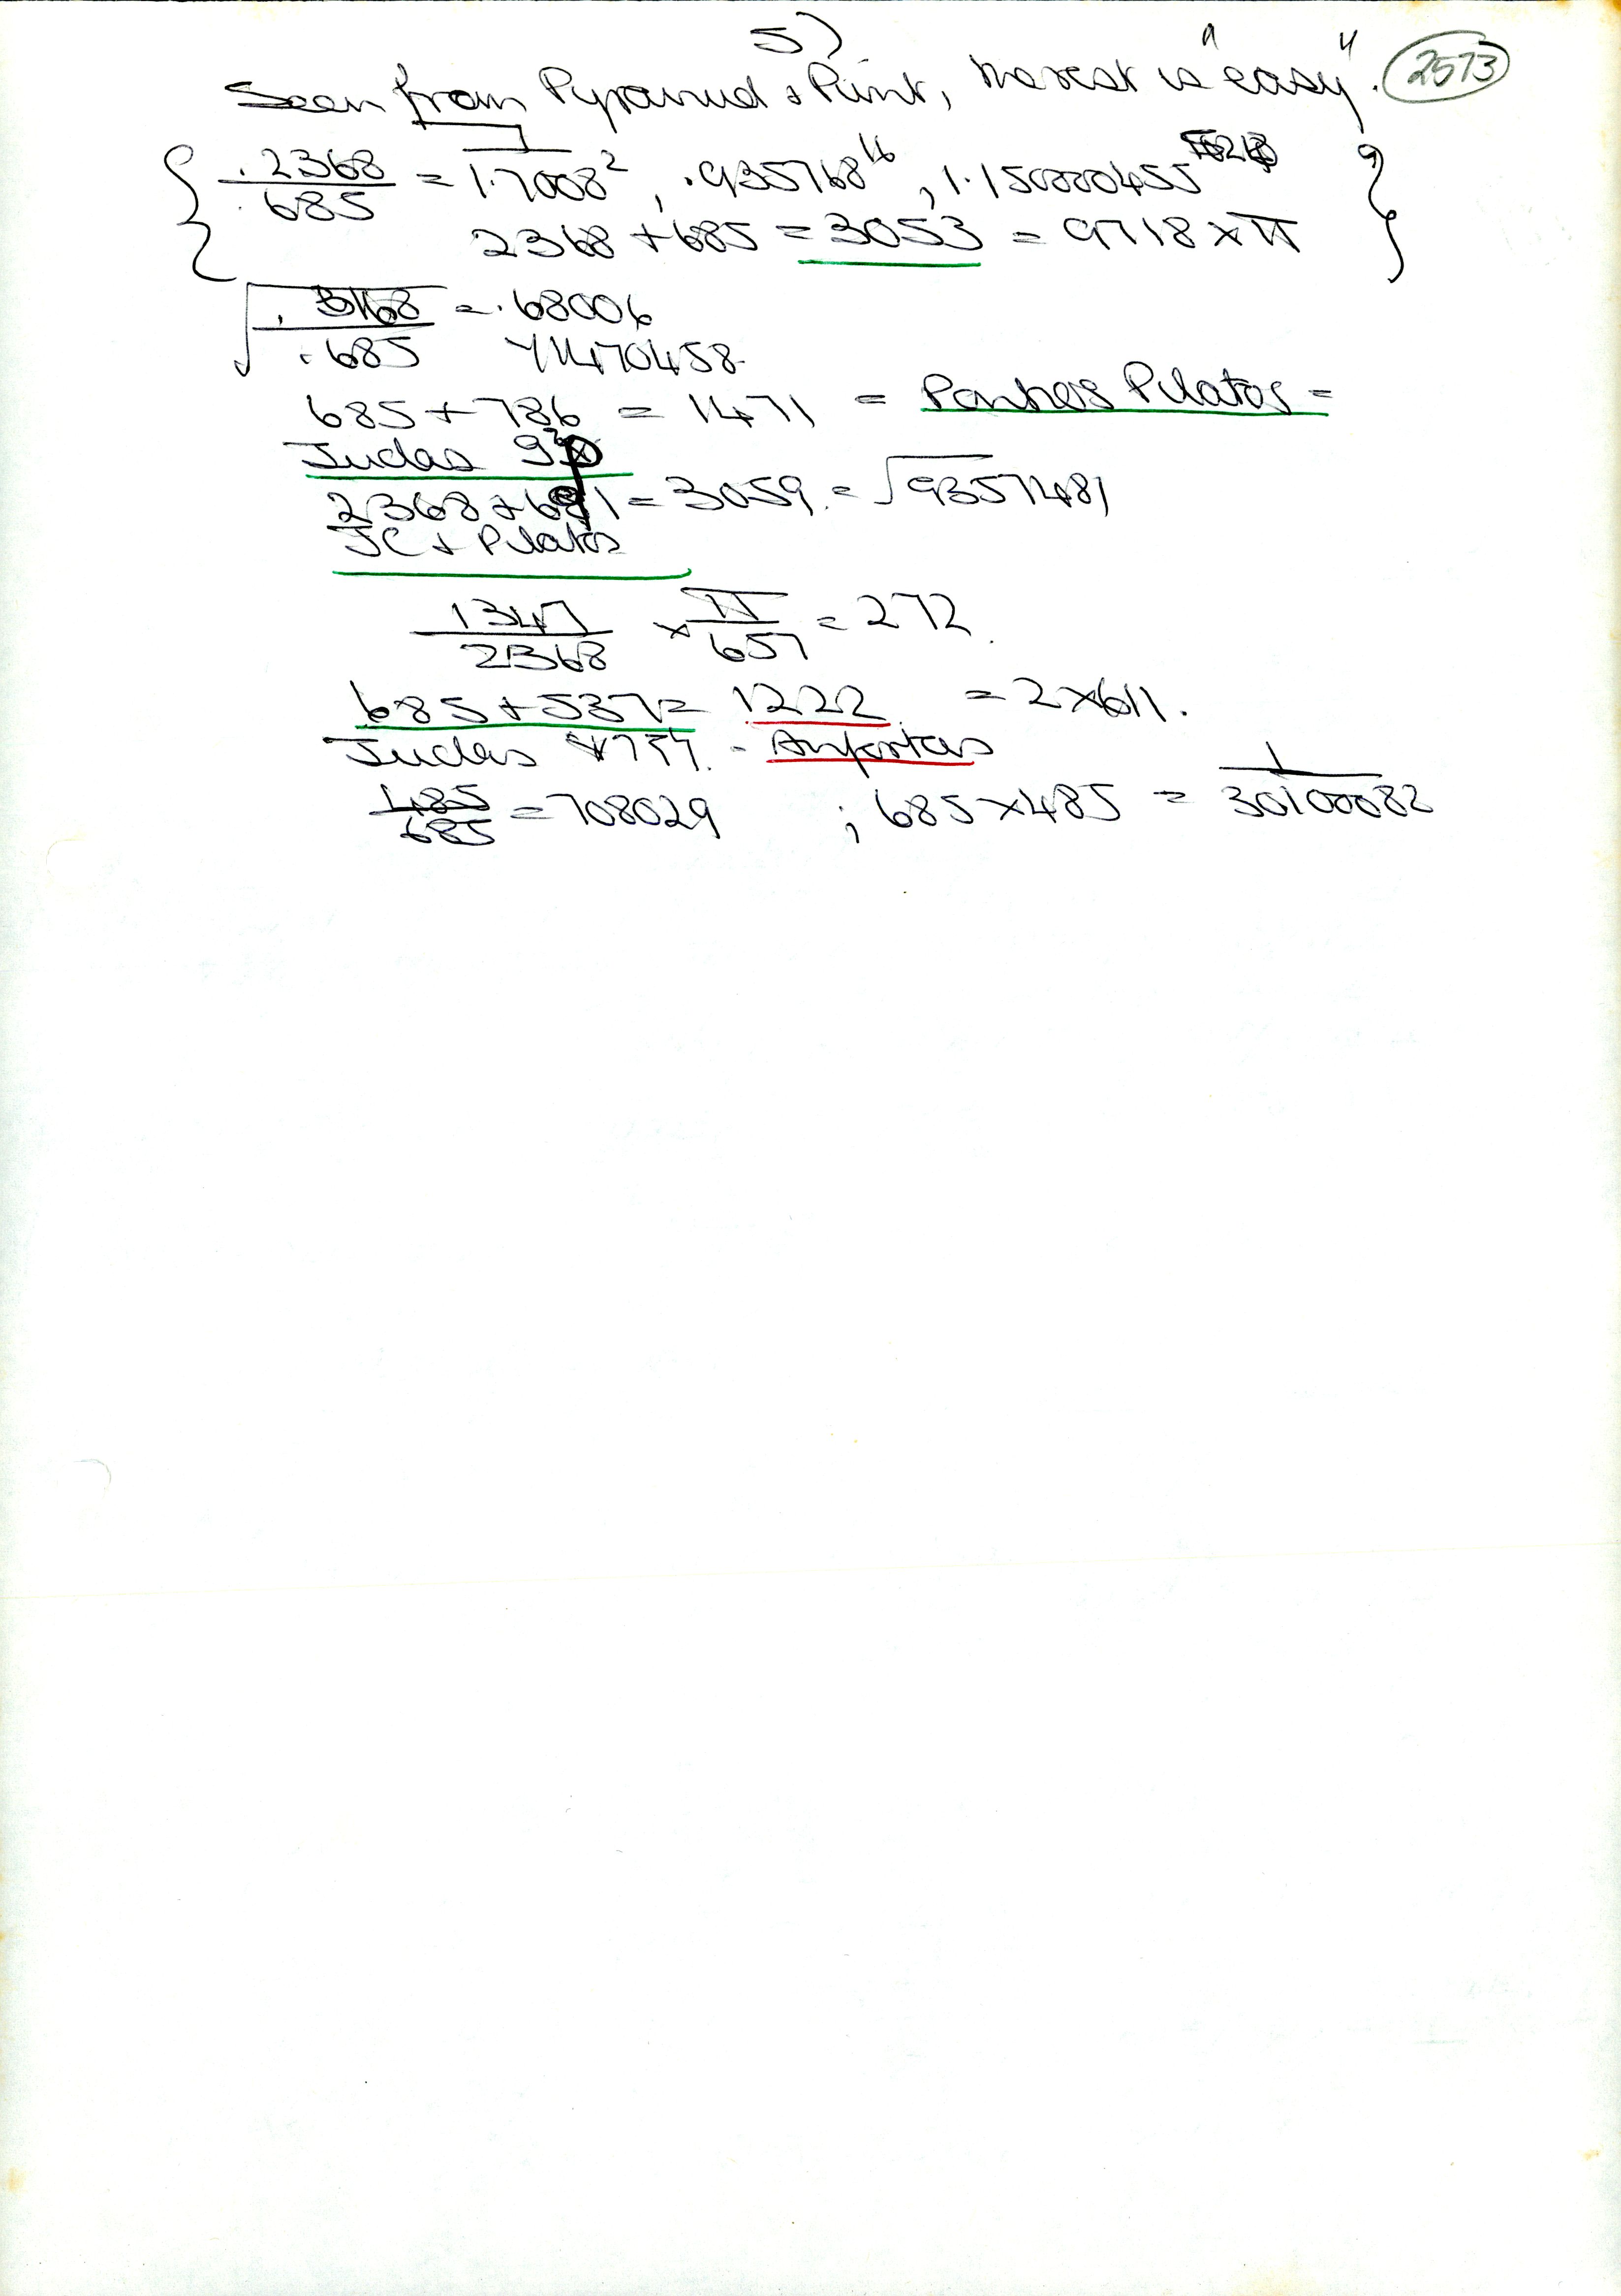 5)
Seen from Pyramid & Point, the rest is "easy". 2573
.2368 / .685 = 1.7008², .935768¹⁶, 1.150000455
2368 + 685 = 3053 = 9718 × π
√ .3168 / .685 = .68006
411470458
685 + 786 = 1471 = Pontios Pilatos =
Judas
2368 + 691 = 3059. = √9357481
JC + Pilatos
1347 / 2368 × π / 657 = 272.
685 + 537 = 1222 = 2 × 611.
Judas - Anfortas
485 / 685 = 708029 ; 685 × 485 = 1 / 30100082